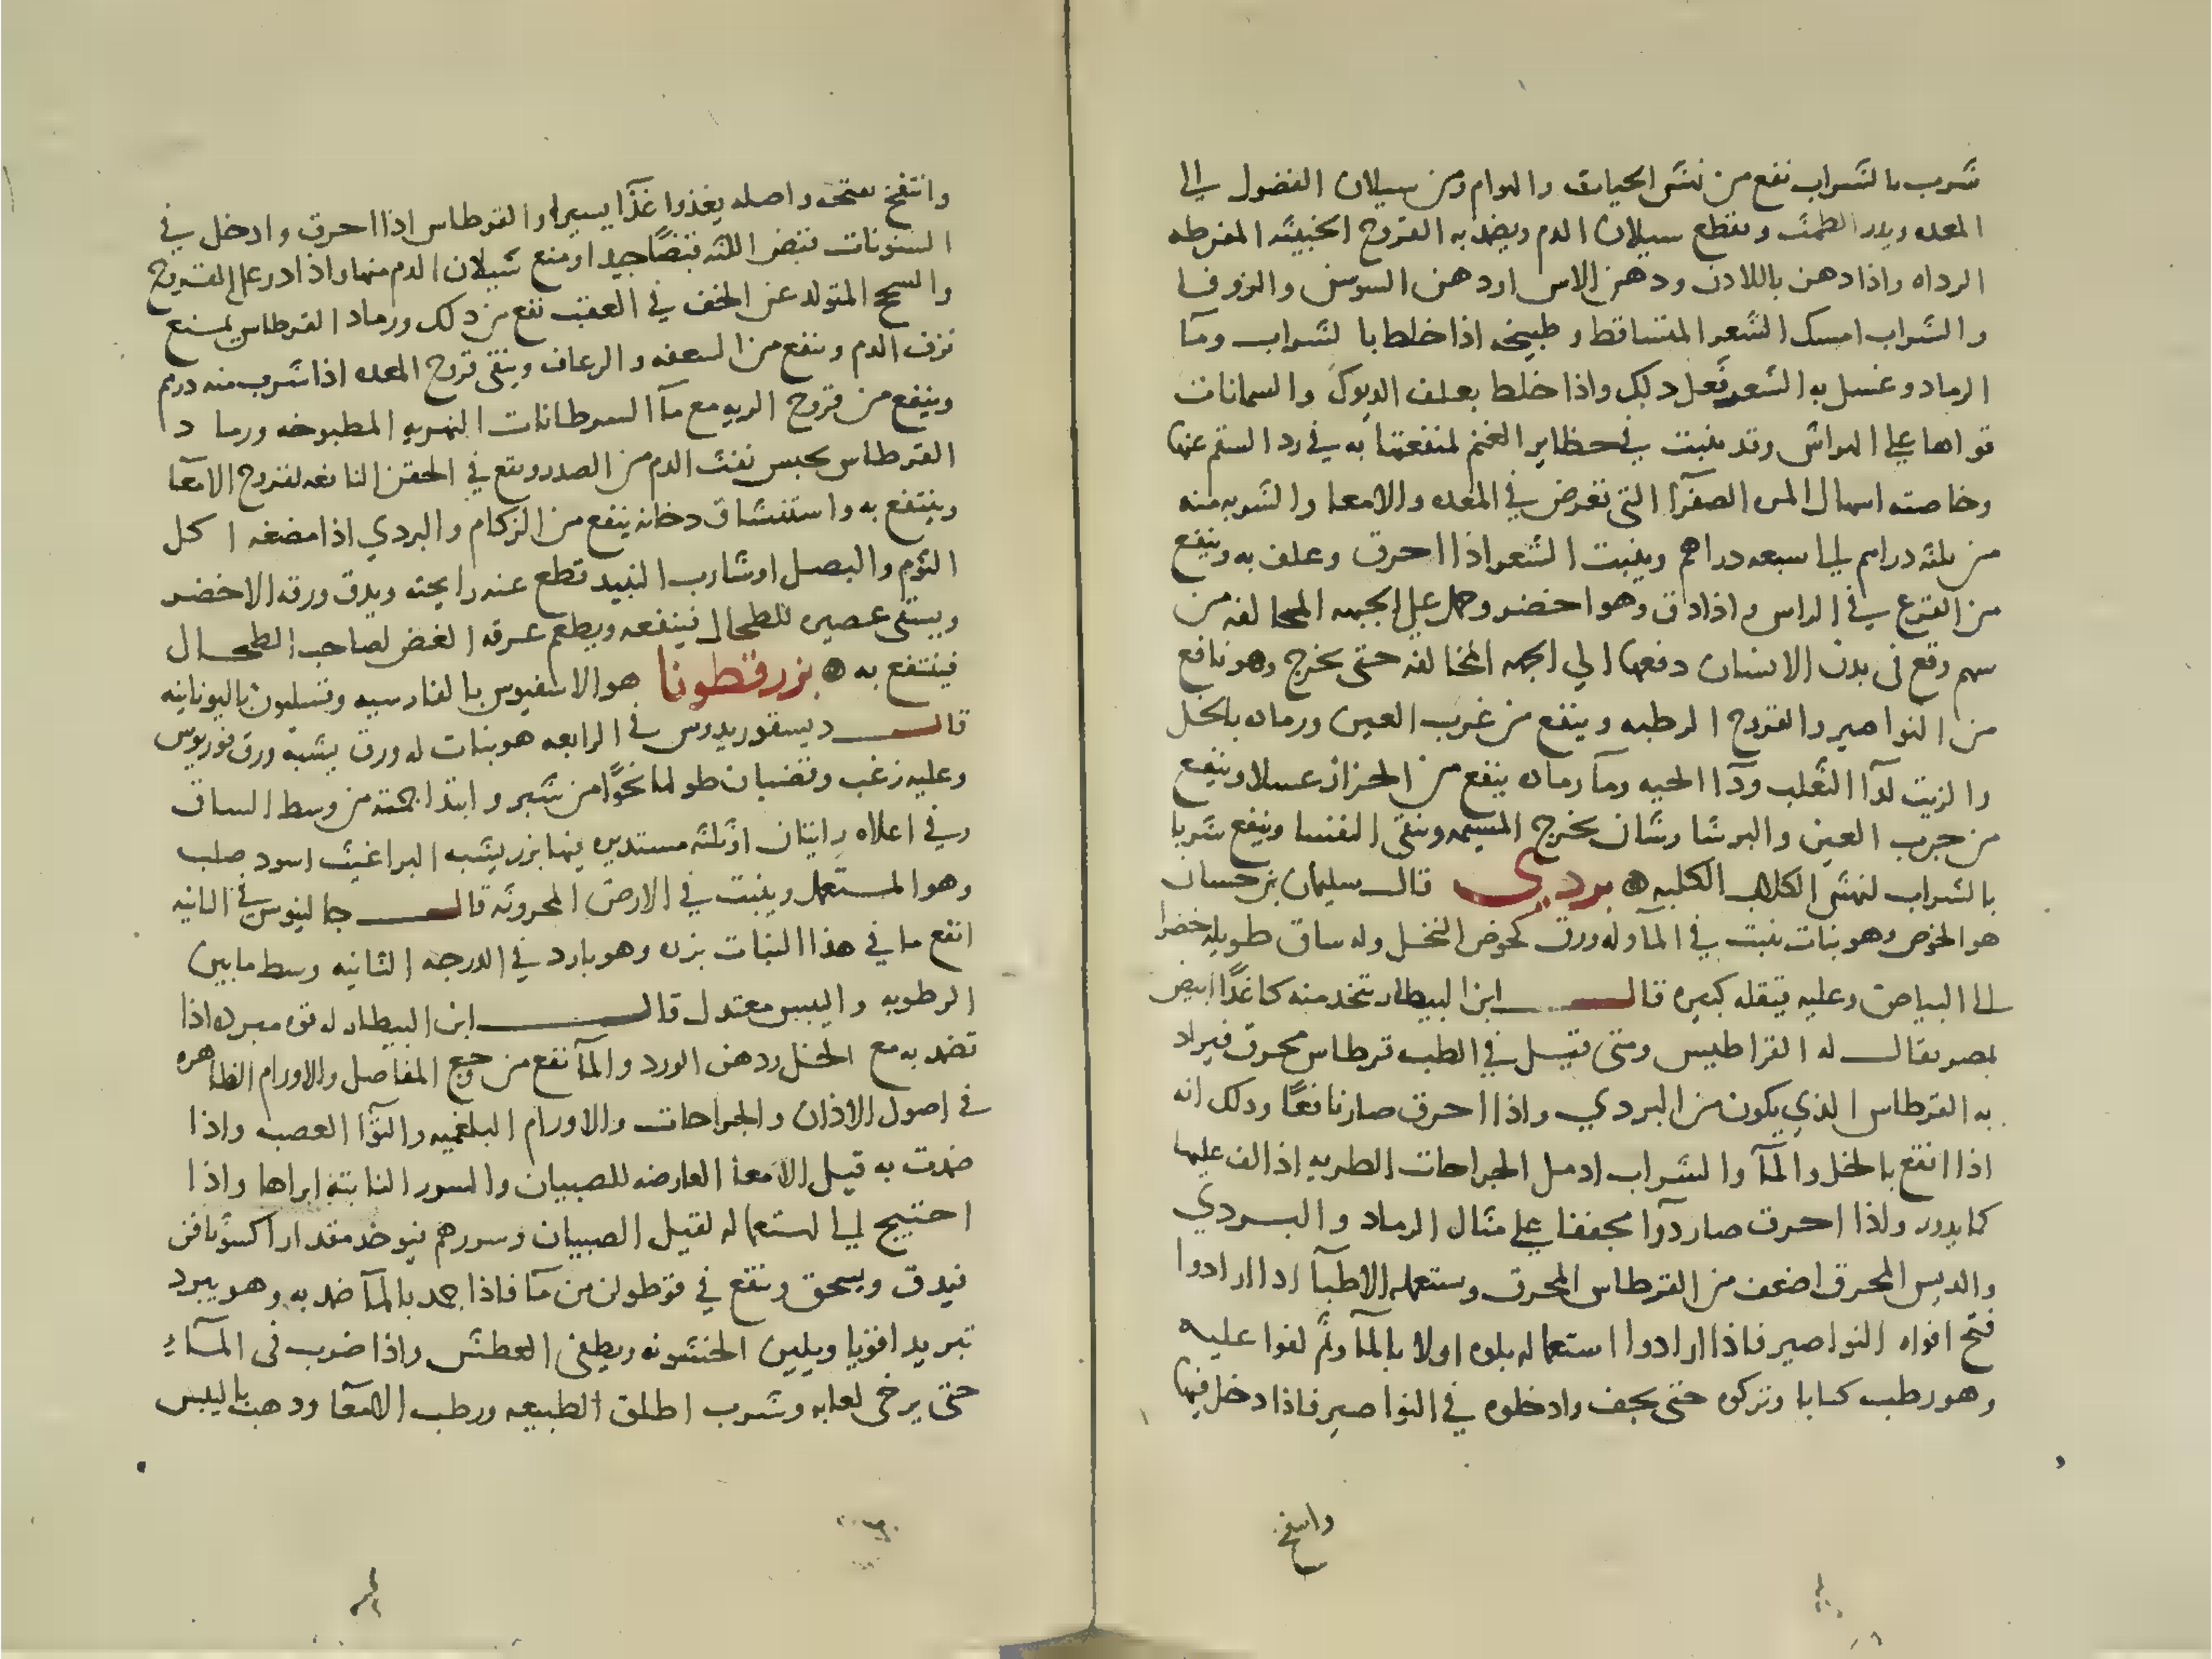 شرب بالشراب نفع من نهش الحيات والهوام ومن سيلان الفضول الى
المعده ويدر الطمث ويقطع سيلان الدم ويضمد به القروح الخبيثه المفرطه
الرداه واذا دهن باللادن ودهن الاس او دهن السوسن والزوفا
والشراب امسك الشعر المتساقط وطبيخه اذا خلط بالشراب وما
الرماد وغسل به الشعر فعل ذلك واذا خلط بعلف الديوك والسمانات
قواها على الهراش وقد ينبت في حظاير الغنم لمنفعتها به في رد السقم عنها
وخاصته اسهال المره الصفرآ التى تعرض في المعده والامعا والشربه منه
من ثلثه دراهم الى سبعه دراهم وينبت الشعر اذا احرق وعلف به وينفع
من القرع في الراس واذا دق وهو اخضر وحمل على الجهه المخالفه من
سهم وقع فى بدن الانسان دفعها الي الجهه المخالفه حتى يخرج وهو نافع
من النواصير والقروح الرطبه وينفع من غرب العين ورماده بالخل
والزيت لدآ الثعلب ودآ الحيه ومآ رماده ينفع من الحزاز غسلا وينفع
من جرب العين والبرشا وشانه يخرج المشيمه وينقى النفسا وينفع شربا
بالشراب لنهش الكلاب الكلبه بردي قال سليمان بن حسان
هو الخوص وهو نبات ينبت في المآ وله ورق كخوص النخل وله ساق طويله خضرا
الى البياض وعليه فيقله كبيره قال ابن البيطار تتخذ منه كاغدًا ابيض
بمصر يقال له القراطيس ومتى قيل في الطب قرطاس محرق فيراد
به القرطاس الذي يكون من البردي واذا احرق صار نافعًا وذلك انه
اذا انقع بالخل والمآ والشراب ادمل الجراحات الطريه اذا لف عليها
كما يدور واذا احرق صار دوآ مجففا على مثال الرماد والبردي
واليبس المحرق اضعف من القرطاس المحرق وستعمله الاطبآ اذا ارادوا
فتح افواه النواصير فاذا ارادوا استعماله بلوه اولا بالمآ وثم لفوا عليه
وهو رطب كتابا وتركوه حتى يجف وادخلوه في النواصير فاذا دخل فيها
وانتفخ
وانتفخ فتحه واصله يغذوا غذآ يسيرا والقرطاس اذا احرق وادخل في
السنونات قبض اللثه قبضًا جيدا ومنع سيلان الدم منها واذا ذر على القروح
والسحج المتولد عن الخف في العقب نفع من ذلك ورماد القرطاس يمنع
نزف الدم وينفع من السعفه والرعاف وينقى قروح المعده اذا شرب منه درهم
وينفع من قروح الريه مع مآ السرطانات النهريه المطبوخه ورماد
القرطاس يحبس نفث الدم من الصدر ويقع في الحقن النافعه لقروح الامعآ
وينتفع به واستنشاق دخانه ينفع من الزكام والبردي اذا مضغه اكل
الثوم والبصل او شارب النبيد قطع عنه رايحته ويدق ورقه الاخضر
ويسقى عصيره للطحال فينفعه ويطعم عرقه الغض لصاحب الطحال
فينتفع به بزر قطونا هو الاسفيوس بالفارسيه وفسليون باليونانيه
قال ديسقوريدوس فى الرابعه هو نبات له ورق يشبه ورق فوريوس
وعليه زغب وقضبان طولها نحوًا من شبر وابتدا جمته من وسط الساق
وفي اعلاه راينان او ثلثه مستديره فيها بزر يشبه البراغيث اسود صلب
وهو المستعمل وينبت في الارض المحروثه قال جالينوس فى الثانيه
انفع ما في هذا النبات بزره وهو بارد في الدرجه الثانيه وسط ما بين
الرطوبه واليبس معتدل قال ابن البيطار له قوه مبرده اذا
تضمد به مع الخل ودهن الورد والمآ نفع من وجع المفاصل والاورام الظاهره
فى اصول الاذان والجراحات والاورام البلغميه والتوآ العصب واذا
ضمدت به قيل الامعآ العارضه للصبيان والسرر الناتيه ابراها واذا
احتيج الى استعماله لقيل الصبيان وسررهم فيوخذ مقدار اكسوثافن
فيدق ويسحق وينقع في قوطولن من مآ فاذا جمد بالمآ ضمد به وهو يبرد
تبريدا قويا ويلين الخشونه ويطفى العطش واذا ضرب فى المآء
حتى يرخى لعابه وشرب اطلق الطبيعه ورطب الامعآ وذهب باليبس